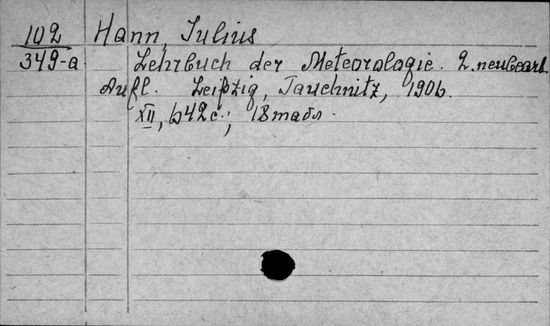 102 Hann, Julius
349-a Lehrbuch der Meteorologie. 2. neubearb.
Aufl. Leipzig, Tauchnitz, 1906.
XII, 642 с.; 18 табл.